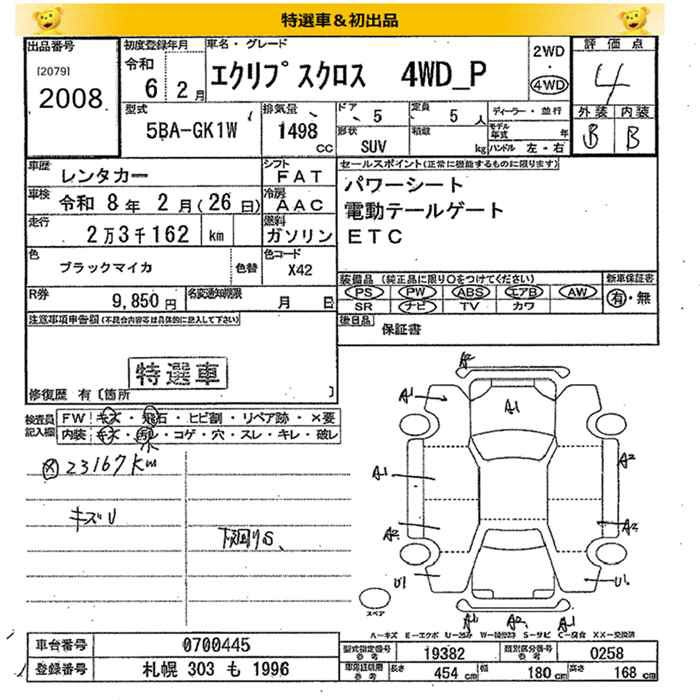 特選車＆初出品
出品番号
[2079]
2008
初度登録年月
令和
6 2月
車名・グレード
エクリプスクロス 4WD_P
2WD
4WD
評価点
4
外装 内装
B B
型式
5BA-GK1W
排気量
1498 CC
ドア
5
定員
5 人
形状
SUV
積載
kg
ディーラー・並行
モデル年式 年
ハンドル 左・右
車歴
レンタカー
シフト
FAT
車検 令和 8年 2月(26日)
冷房
AAC
走行
2万3千162 km
燃料
ガソリン
色
ブラックマイカ
色替
色コード
X42
R券
9,850円
名変通知期限
月 日
セールスポイント(正常に機能するものに限ります)
パワーシート
電動テールゲート
ETC
装備品 (純正品に限り○をつけてください)
PS PW ABS エアB AW
SR ナビ TV カワ
新車保証書
有・無
後日品
保証書
注意事項申告欄(不具合内容等は具体的に記入して下さい)
特選車
修復歴 有〔箇所 〕
検査員記入欄
FW キズ・飛石・ヒビ割・リペア跡・×要
内装 キズ・汚レ・コゲ・穴・スレ・キレ・破レ
23167km
キズU
下回りS
A2
A1
A1
A1
A2
A2
A2
U1
U1
A1 A2 A1
スペア
A-キズ E-エクボ U-凹み W-補修跡 S-サビ C-腐食 XX-交換済
車台番号
0700445
登録番号
札幌 303 も 1996
型式指定番号
19382
類別区分番号
0258
長さ
454 cm
幅
180 cm
高さ
168 cm